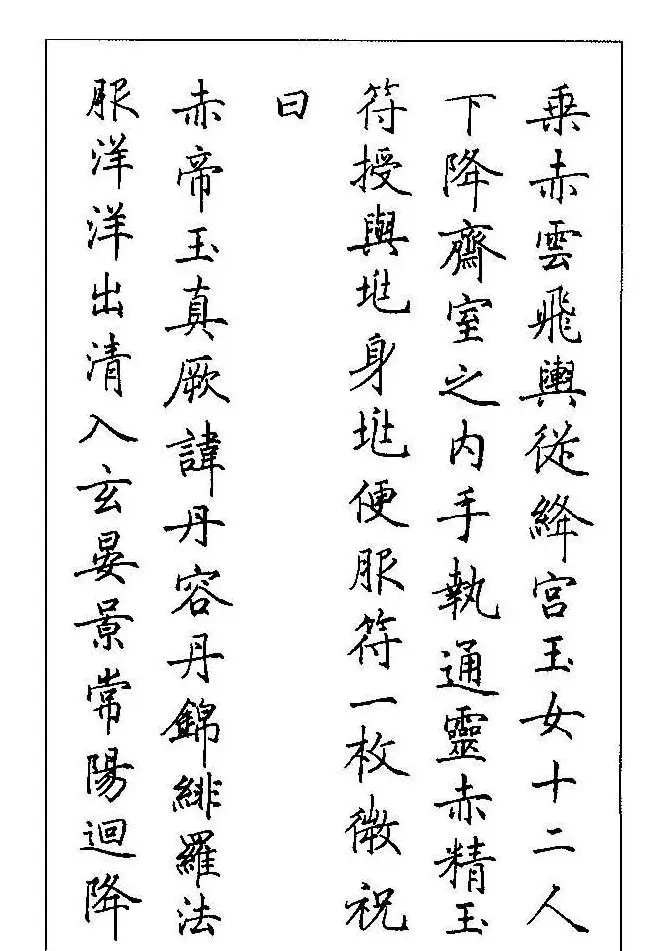 乗赤雲飛輿從絳宮玉女十二人
下降齋室之内手執通靈赤精玉
符授與兆身兆便服符一枚微祝
曰
赤帝玉真厥諱丹容丹錦緋羅法
服洋洋出清入玄晏景常陽迴降